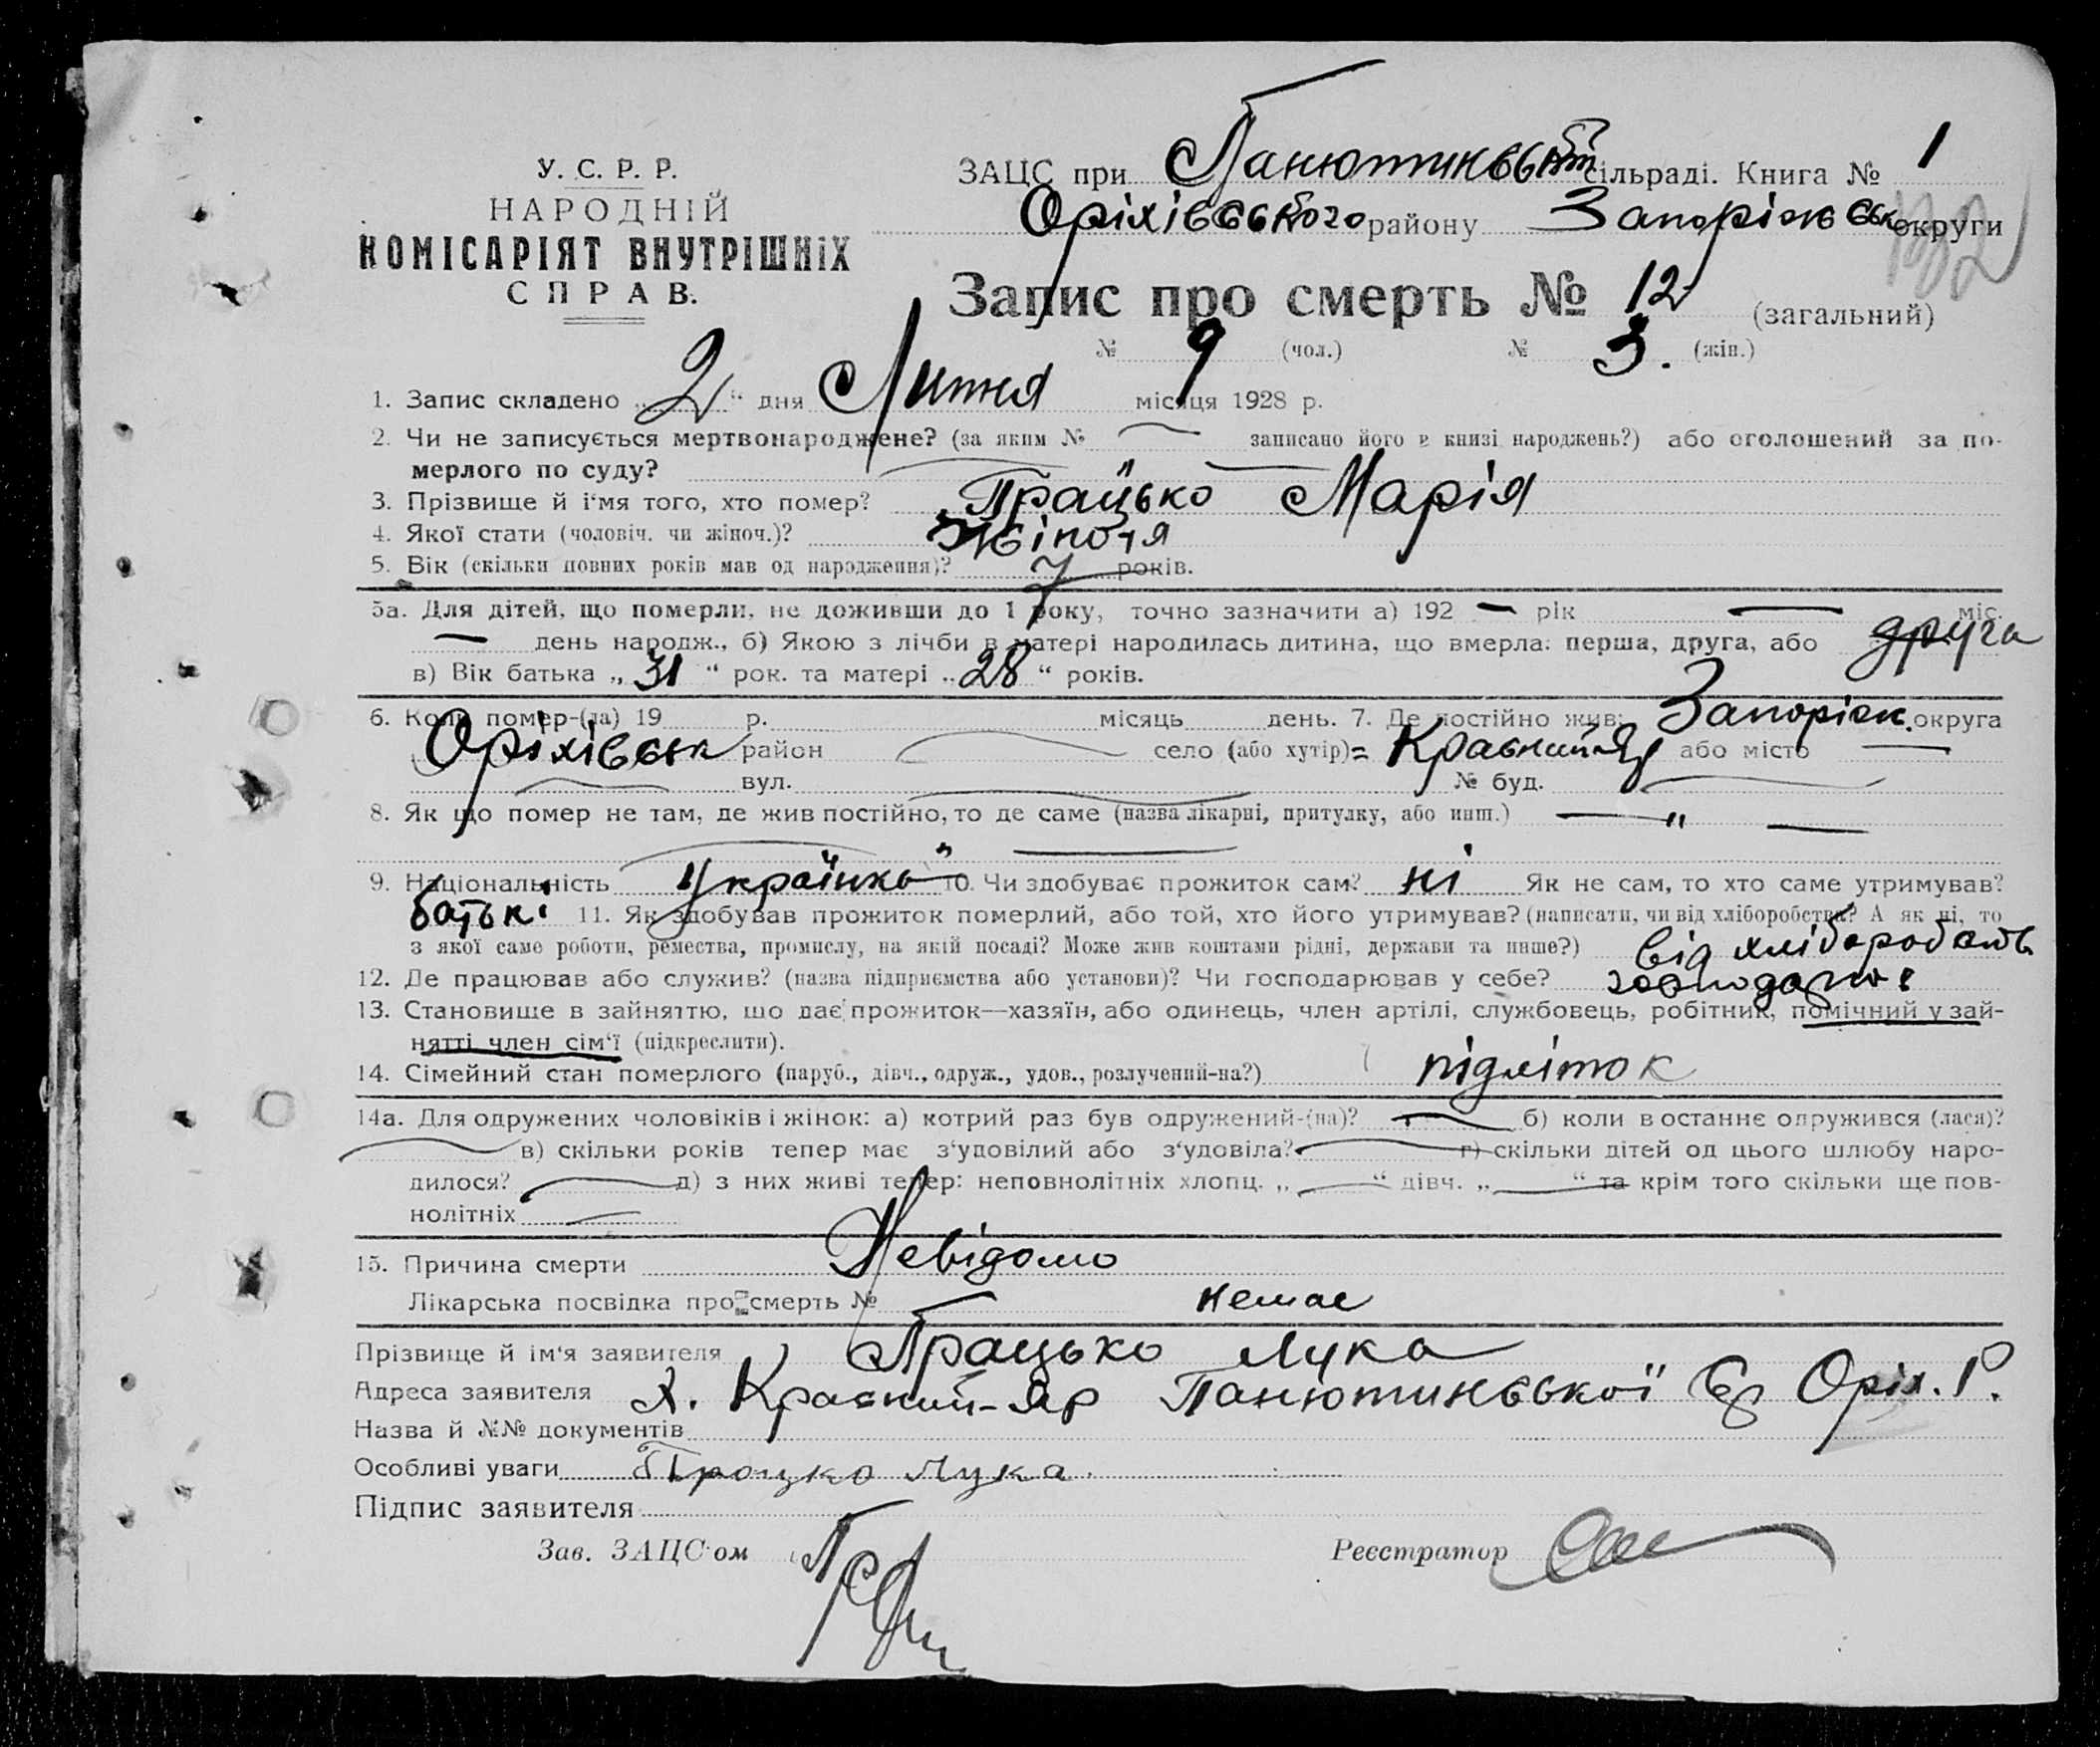 У. С. Р. Р.
НАРОДНІЙ
КОМІСАРІЯТ ВНУТРІШНІХ
СПРАВ.
ЗАЦС при Панютинській сільраді. Книга № 1
Оріхівського району Запоріжськ округи
132
Запис про смерть № 12 (загальний)
№ 9 (чол.) № 3. (жін.)
1. Запис складено „ 2 “ дня Липня місяця 1928 р.
2. Чи не записується мертвонароджене? (за яким № — записано його в книзі народжень?) або оголошений за по-
мерлого по суду? —
3. Прізвище й і'мя того, хто помер? Працько Марія
4. Якої стати (чоловіч. чи жіноч.)? Жіноча
5. Вік (скільки повних років мав од народження)? 7 років.
5а. Для дітей, що померли, не доживши до 1 року, точно зазначити а) 192 — рік — міс.
— день народж., б) Якою з лічби в матері народилась дитина, що вмерла: перша, друга, або друга
в) Вік батька „ 31 “ рок. та матері „ 28 “ років.
6. Коли помер-(ла) 19 р. місяць день. 7. Де постійно жив: Запоріж. округа
Оріхівськ район — село (або хутір) = Красний Яр або місто —
— вул. — № буд. —
8. Як що помер не там, де жив постійно, то де саме (назва лікарні, притулку, або инш.) — " —
9. Національність Українка 10. Чи здобуває прожиток сам? ні Як не сам, то хто саме утримував?
батьки 11. Як здобував прожиток померлий, або той, хто його утримував? (написати, чи від хліборобства? А як ні, то
з якої саме роботи, ремества, промислу, на якій посаді? Може жив коштами рідні, держави та инше?) від хліборобств
12. Де працював або служив? (назва підприємства або установи)? Чи господарював у себе?
13. Становище в зайняттю, що дає прожиток—хазяїн, або одинець, член артілі, службовець, робітник, помічний у зай-
нятті член сім'ї (підкреслити).
14. Сімейний стан померлого (паруб., дівч., одруж., удов., розлучений-на?) підліток
14а. Для одружених чоловіків і жінок: а) котрий раз був одружений-(на)? — б) коли в останнє одружився (лася)?
— в) скільки років тепер має з'удовілий або з'удовіла? — г) скільки дітей од цього шлюбу наро-
дилося? — д) з них живі тепер: неповнолітніх хлопц. „ — “ дівч. „ — “ та крім того скільки ще пов-
нолітніх —
15. Причина смерти Невідомо
Лікарська посвідка про смерть № немає
Прізвище й ім'я заявителя Працько Лука
Адреса заявителя х. Красний-Яр Панютинської С/р Оріх. Р.
Назва й №№ документів
Особливі уваги Працко Лука
Підпис заявителя
Зав. ЗАЦС'ом Реєстратор